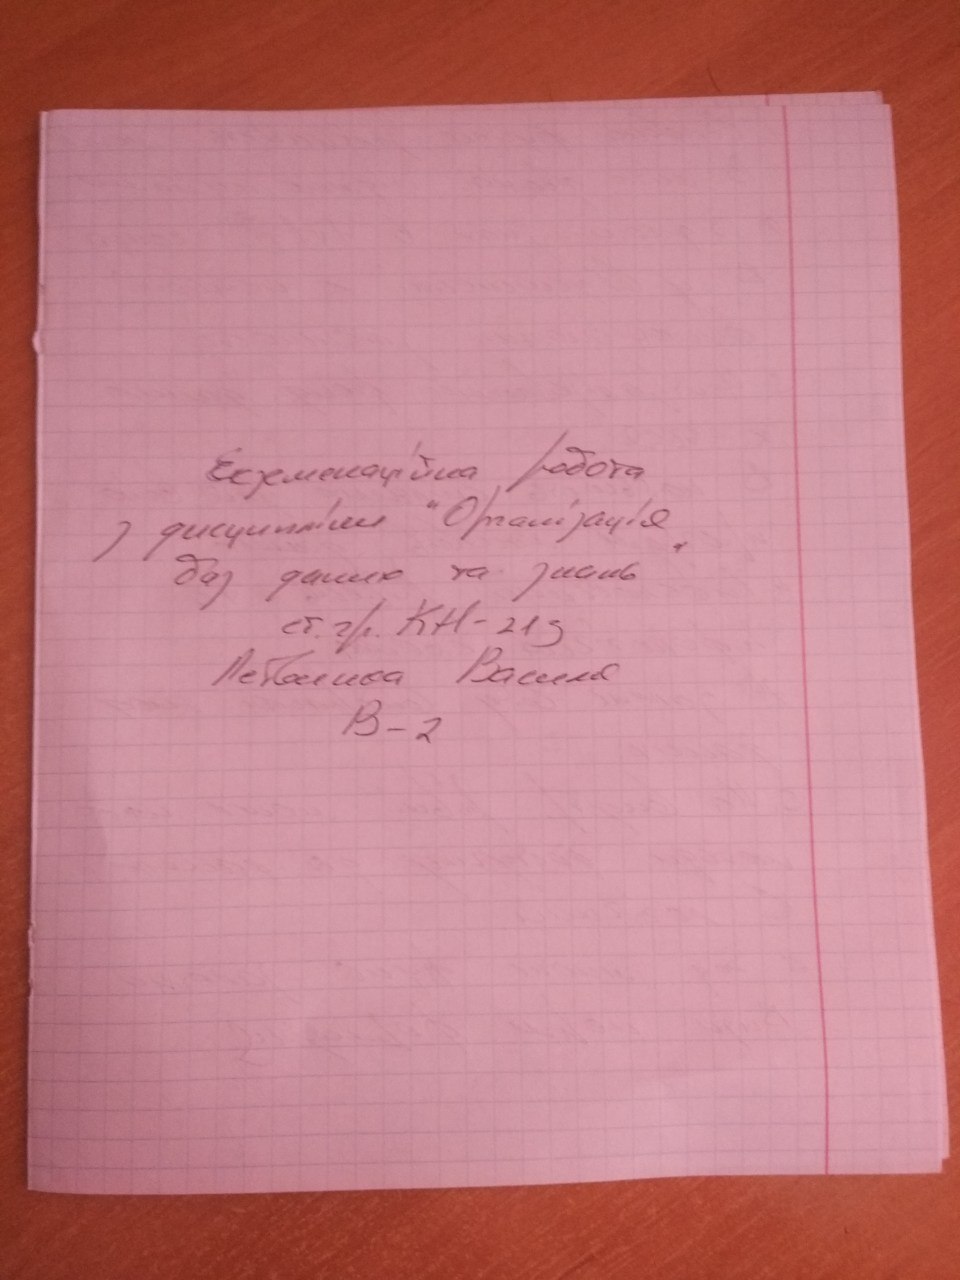 Екземенаційна робота
з дисципліни "Організація
баз даних та знань"
ст. гр. КН-21з
Василя
В-2